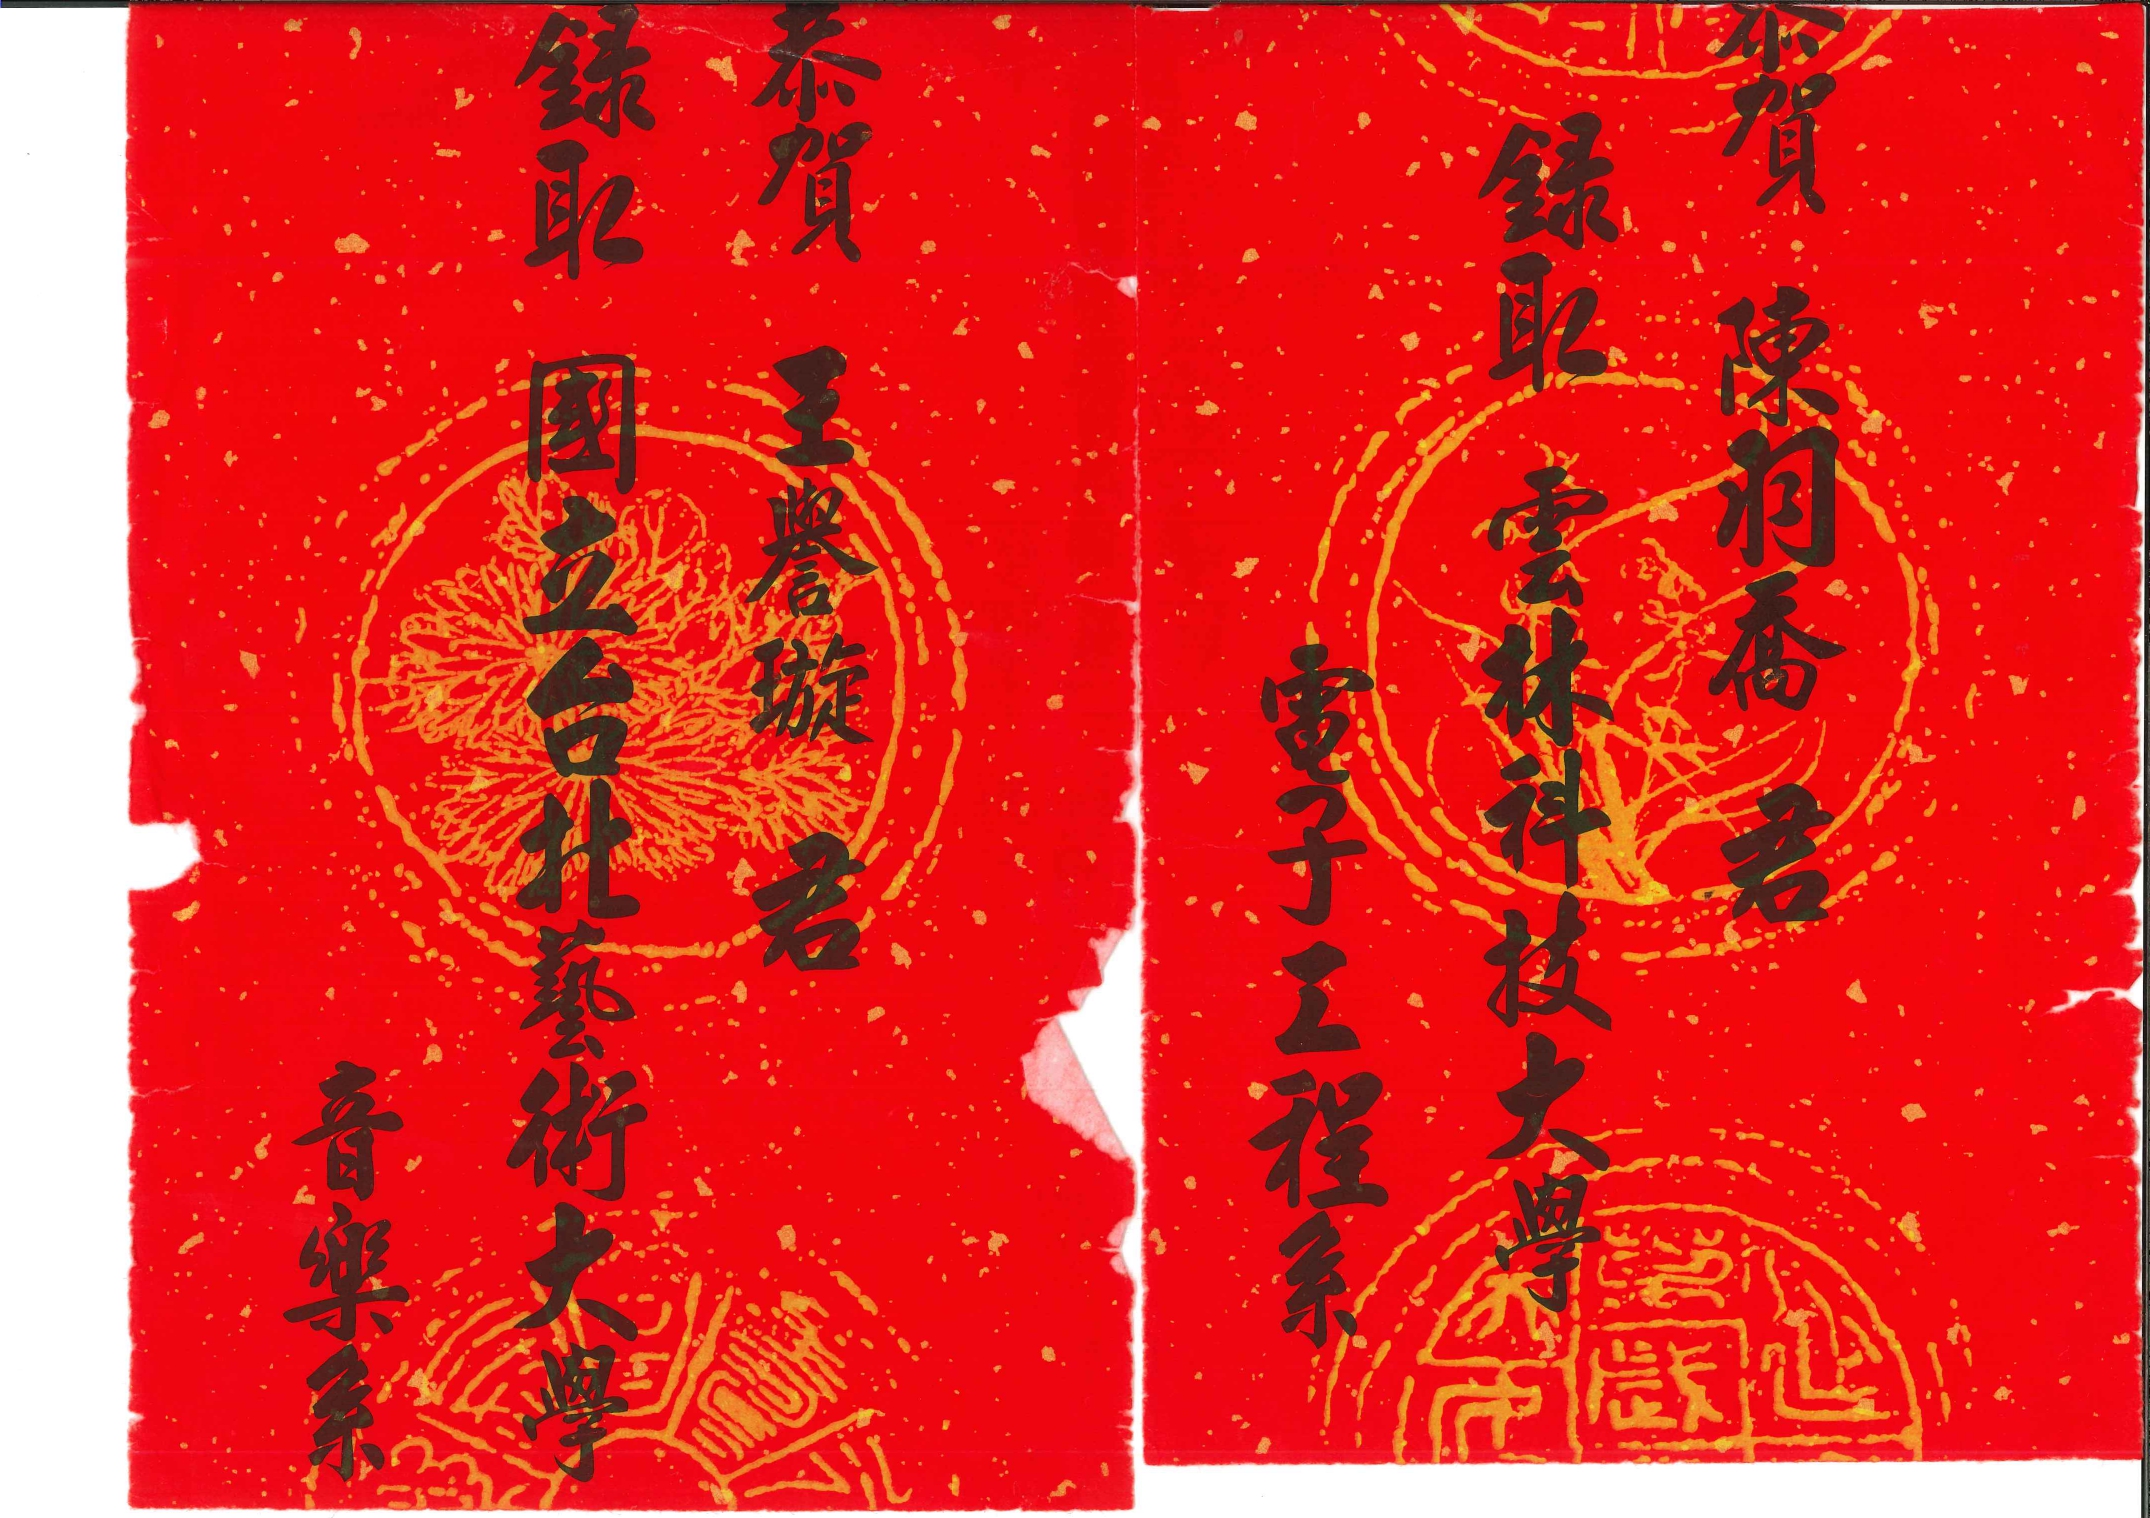 恭賀 陳羽喬 君
録取 雲林科技大學
電子工程系
恭賀 王譽璇 君
録取 國立台北藝術大學
音樂系